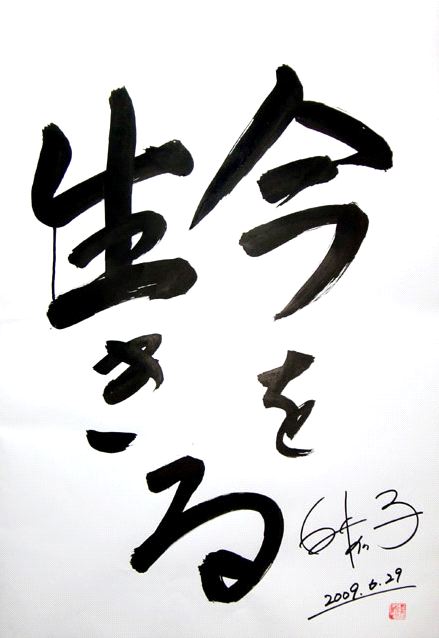 今を
生きる
2009.6.29